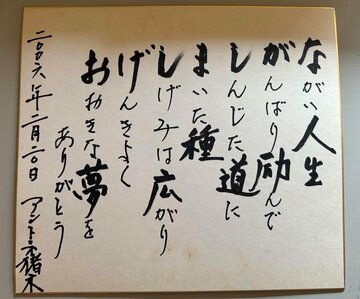 ながい人生
がんばり励んで
しんじた道に
まいた種
しげみは広がり
げんきよく
おおきな夢を
ありがとう
二〇〇六年二月二〇日 アントニオ猪木